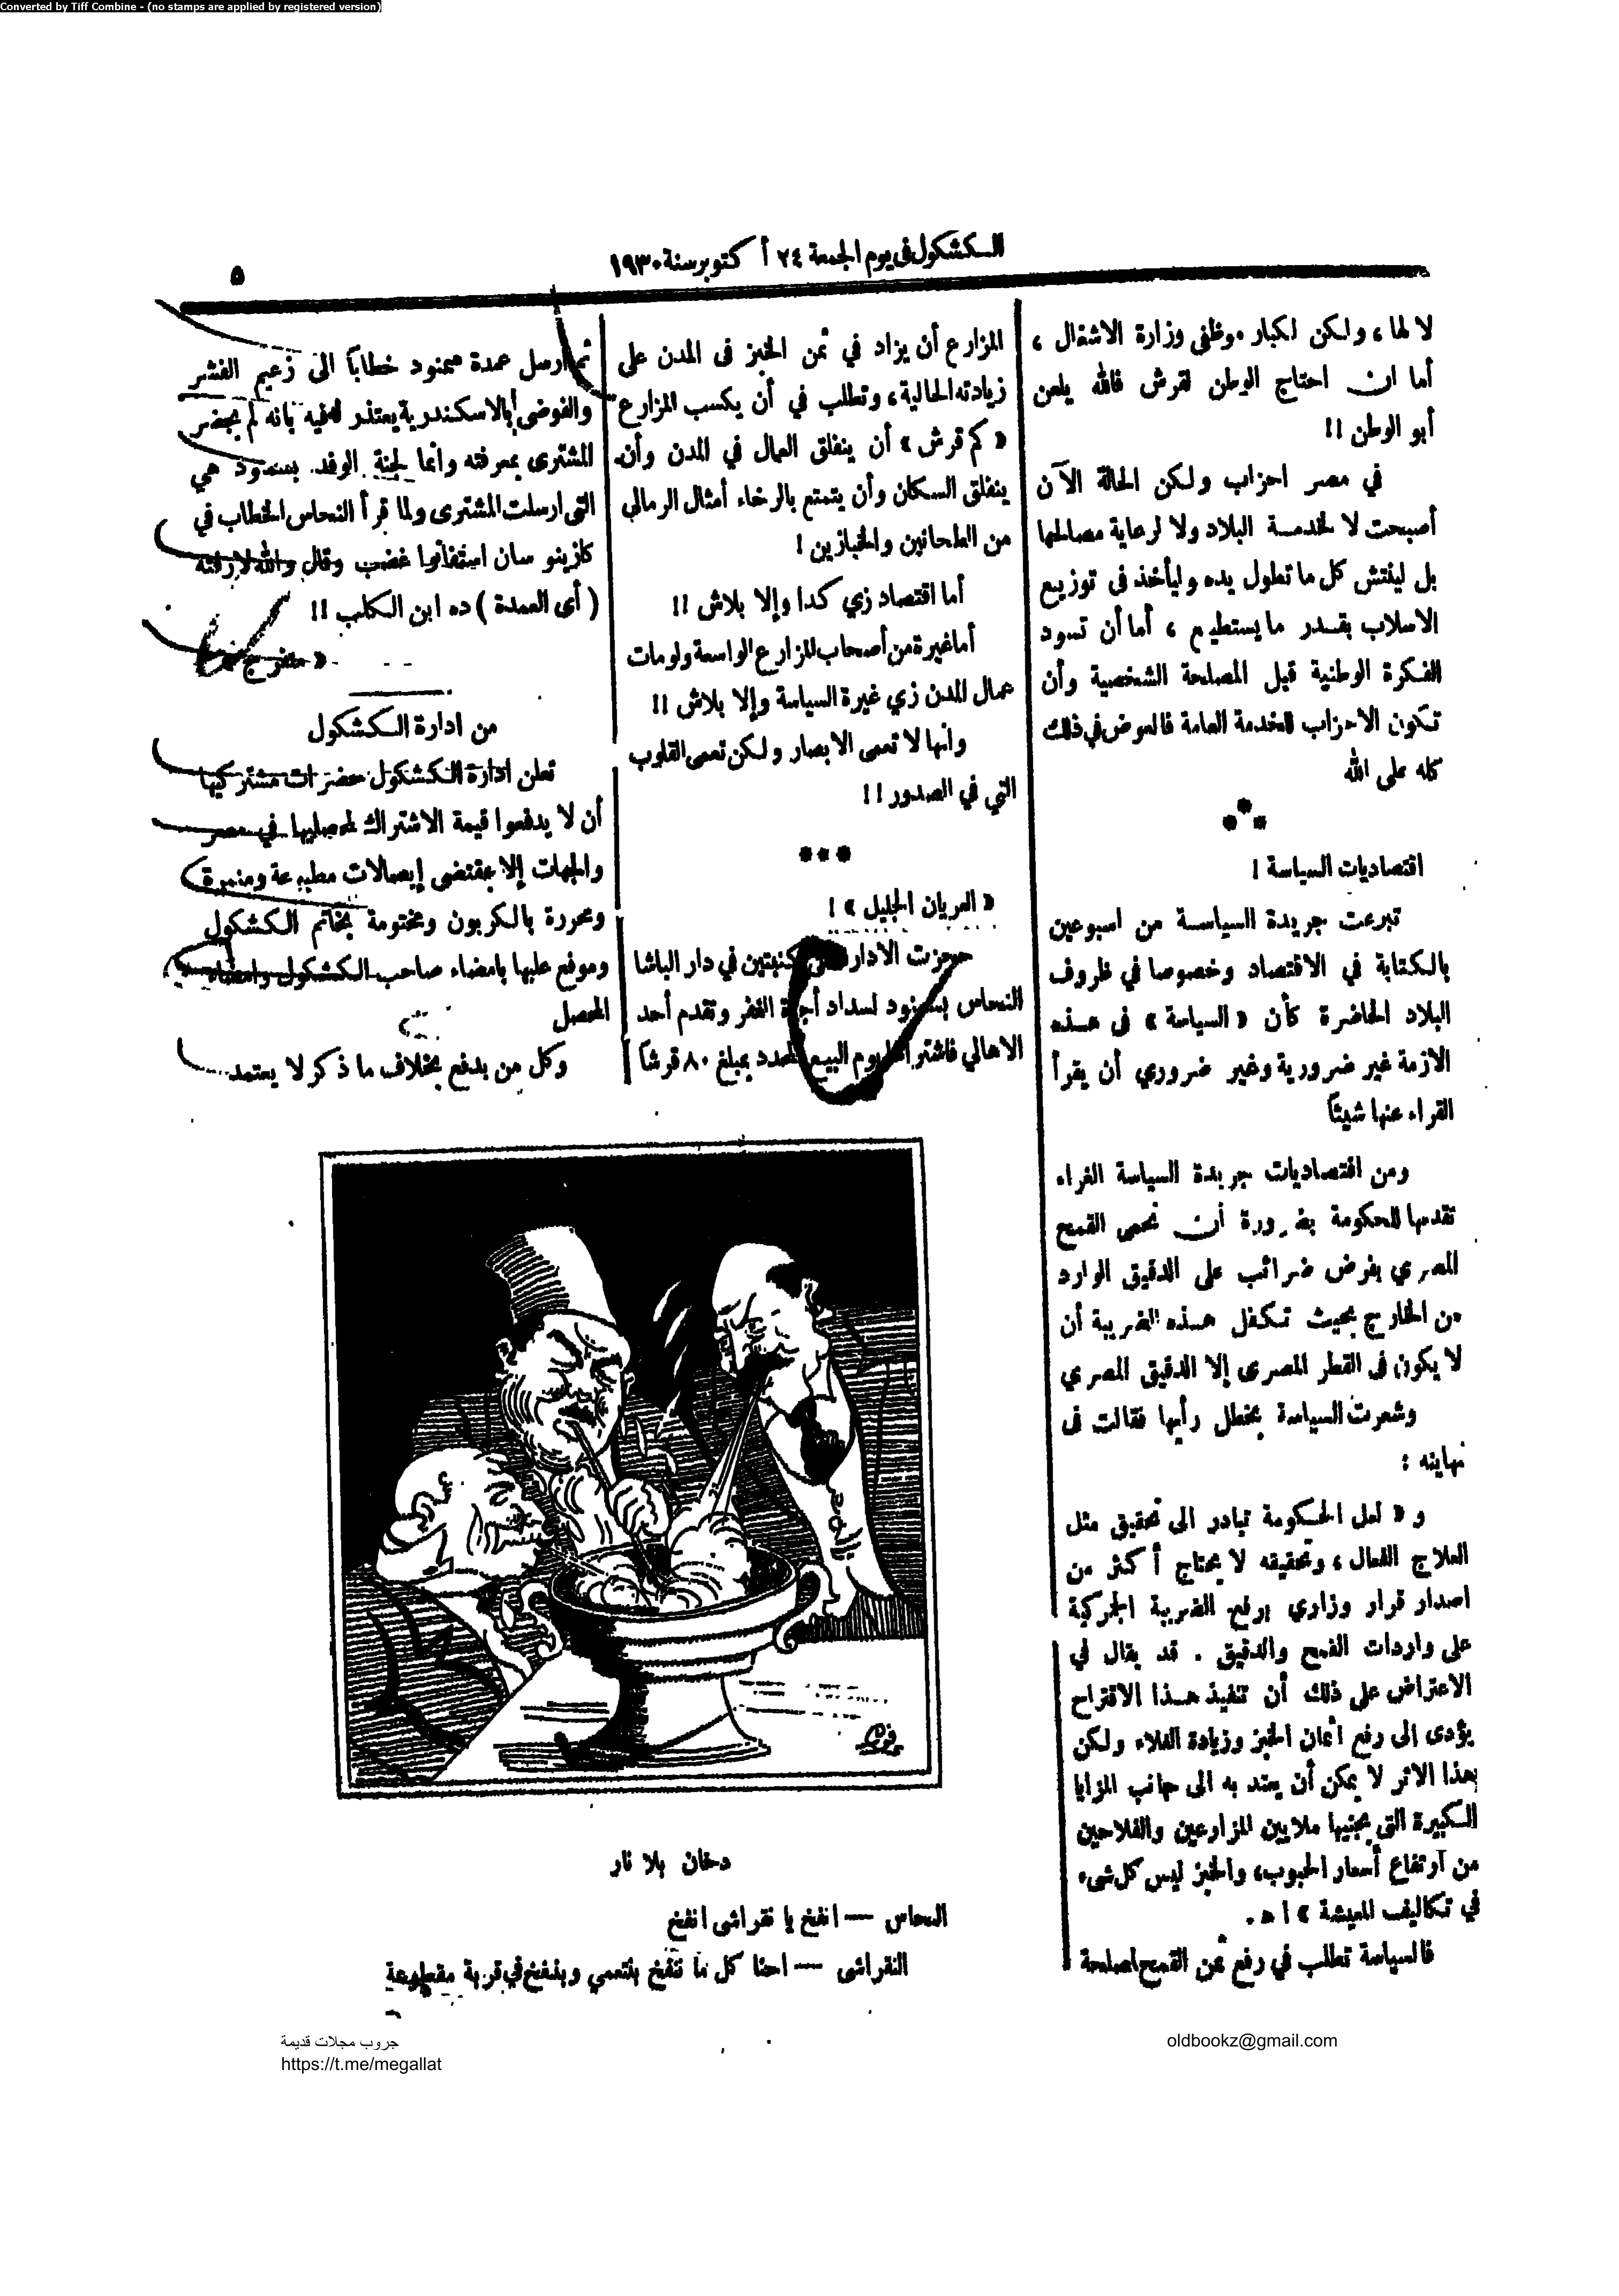 Converted by Tiff Combine - (no stamps are applied by registered version)
الكشكول في يوم الجمعة ٢٤ أكتوبر سنة ١٩٣٠
٥
لا لها ، ولكن لكبار موظفي وزارة الاشغال ،
أما ان احتاج الوطن لقرش فالله يلعن
أبو الوطن !!
في مصر احزاب ولكن الحالة الآن
أصبحت لا لخدمة البلاد ولا لرعاية مصالحها
بل لينتش كل ما تطول يده وليأخذ فى توزيع
الاسلاب بقدر ما يستطيع ، أما أن تسود
الفكرة الوطنية قبل المصلحة الشخصية وأن
تكون الاحزاب للخدمة العامة فالعوض في ذلك
كله على الله
***
اقتصاديات السياسة !
تبرعت جريدة السياسة من اسبوعين
بالكتابة في الاقتصاد وخصوصا في ظروف
البلاد الحاضرة كأن « السياسة » فى هذه
الازمة غير ضرورية وغير ضروري أن يقرأ
القراء عنها شيئاً
ومن اقتصاديات جريدة السياسة الغراء
تقدمها للحكومة بضرورة أن نحمى القمح
المصري بفرض ضرائب على الدقيق الوارد
من الخارج بحيث تكفل هذه الضريبة أن
لا يكون فى القطر المصرى إلا الدقيق المصري
وشعرت السياسة بخطل رأيها فقالت فى
نهايته :
و « لعل الحكومة تبادر الى تحقيق مثل
العلاج الفعال ، وتحقيقه لا يحتاج أكثر من
اصدار قرار وزاري برفع الضريبة الجمركية
على واردات القمح والدقيق . قد يقال في
الاعتراض على ذلك أن تنفيذ هذا الاقتراح
يؤدى إلى رفع أثمان الخبز وزيادة الغلاء ولكن
هذا الاثر لا يمكن أن يعتد به الى جانب المزايا
الكبيرة التى يجنيها ملايين المزارعين والفلاحين
من ارتفاع أسعار الحبوب، والخبز ليس كل شىء
في تكاليف المعيشة » ا هـ .
فالسياسة تطلب في رفع ثمن القمح لمصلحة
المزارع أن يزاد في ثمن الخبز فى المدن على
زيادته الحالية ، وتطلب في أن يكسب المزارع
« كم قرش » أن ينفلق العمال في المدن وأن
ينفلق السكان وأن يتمتع بالرخاء أمثال الرمالي
من الطحانين والخبازين !
أما اقتصاد زي كدا وإلا بلاش !!
أما غيرة من أصحاب المزارع الواسعة ولومات
عمال المدن زي غيرة السياسة وإلا بلاش !!
وانها لا تعمى الابصار ولكن تعمى القلوب
التي في الصدور !!
***
« العريان الجليل » !
حجزت الادارة على كنبتين في دار الباشا
النحاس بسمنود لسداد أجرة الغفر وتقدم أحد
الاهالي فاشتراها يوم البيع المحدد بمبلغ ٨٠ قرشاً
ثم أرسل عمدة سمنود خطاباً الى زعيم الفشر
والفوضى بالاسكندرية يعتذر له فيه بانه لم يحضر
المشترى بمعرفته وانما لجنة الوفد بسمنود هي
التى ارسلت المشترى ولما قرأ النحاس الخطاب في
كازينو سان استفانو غضب وقال والله لارفته
( أى العمدة ) ده ابن الكلب !!
« متفرج »
من ادارة الكشكول
تعلن ادارة الكشكول حضرات مشتركيها
أن لا يدفعوا قيمة الاشتراك لمحصليها في مصر
والجهات إلا بمقتضى إيصالات مطبوعة ومنمرة
ومحررة بالكربون ومختومة بخاتم الكشكول
وموقع عليها بامضاء صاحب الكشكول وامضاء
المحصل
وكل من يدفع بخلاف ما ذكر لا يعتمد
دخان بلا نار
النحاس — انفخ يا نقراشى انفخ
النقراشى — احنا كل ما ننفخ بنتعمي وبننفخ في قربة مقطوعة
جروب مجلات قديمة
https://t.me/megallat
oldbookz@gmail.com